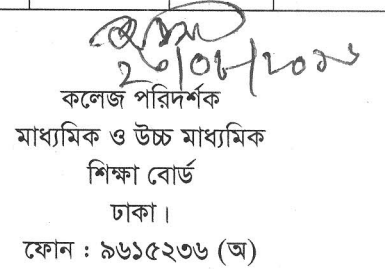 কলেজ পরিদর্শক
মাধ্যমিক ও উচ্চ মাধ্যমিক
শিক্ষা বোর্ড
ঢাকা।
ফোন : ৯৬১৫২৩৬ (অ)